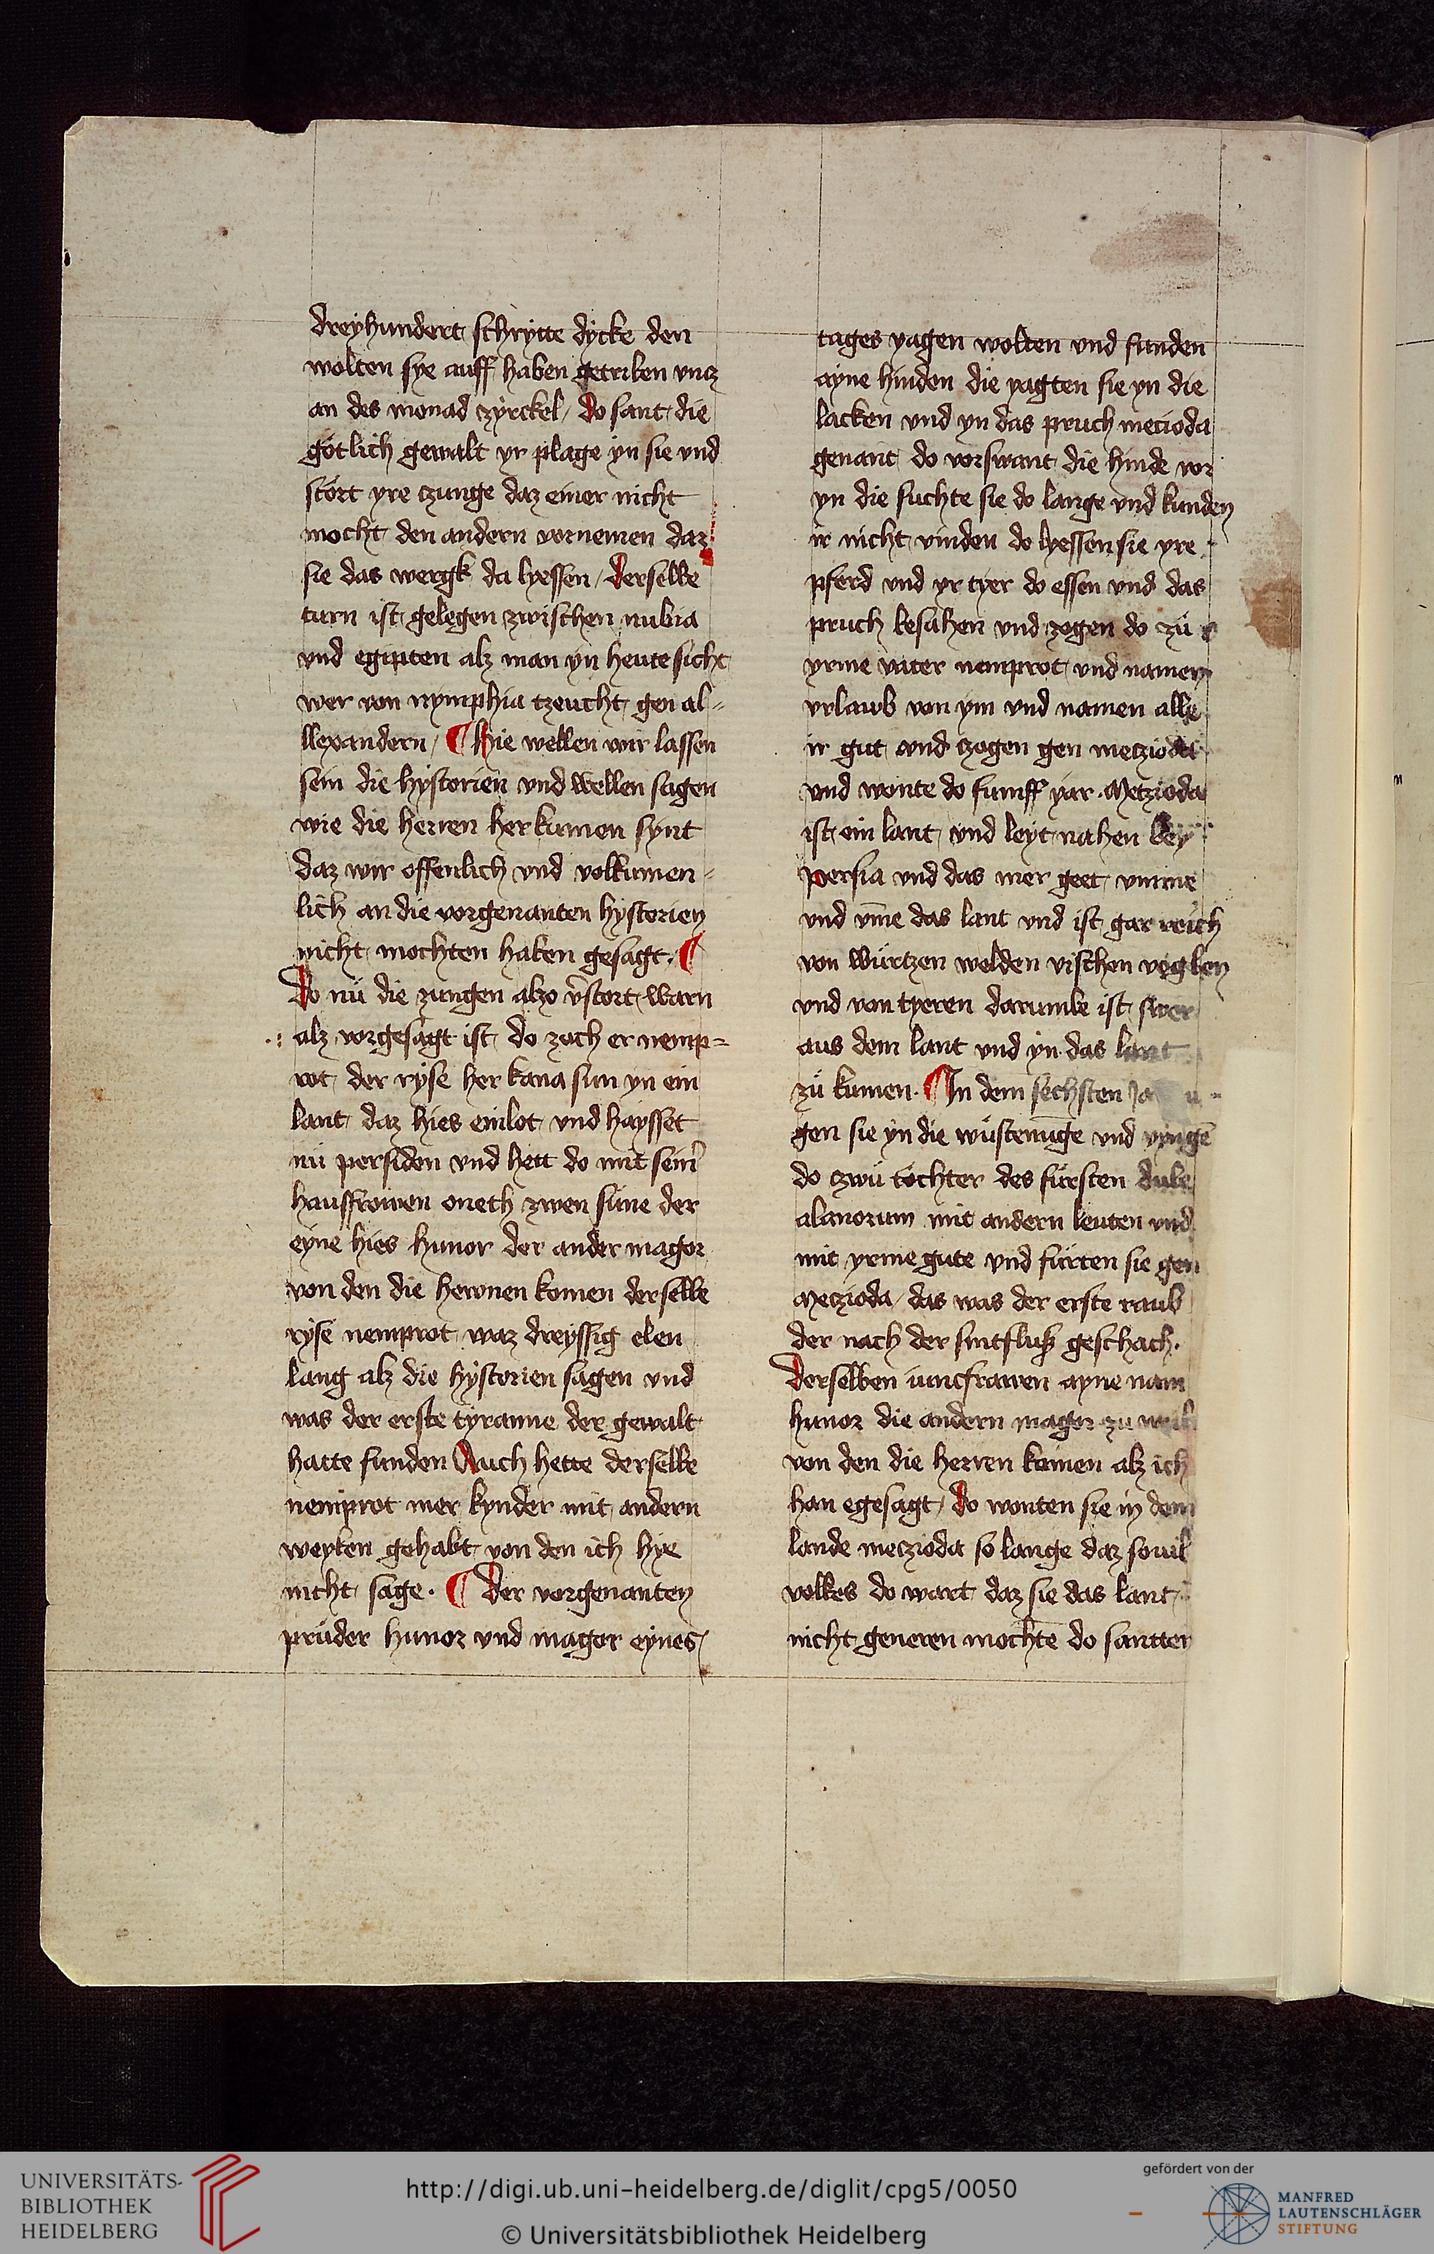 dreyhundert schrytte dycke den
wolten sye auff haben getriben vncz
an des monad zyrckel / do sant die
gotlich gewalt yr plage yn sie vnd
stort yre czunge daz einer nicht
mocht den andern vornemen daz
sie das wergk da lyessen / derselbe
turn ist gelegen zwischen nubia
vnd egipten alz man yn heute sicht
wer von nymphia tzeucht gen al-
llexandern / ¶ Hie wellen wir lassen
sein die hystorien vnd wellen sagen
wie die herren her kumen synt
daz wir offenlich vnd volkumen-
lich an die vorgenanten hystorien
nicht mochten haben gesagt. ¶
Do nü die zungen alzo v̉stort warn
alz vorgesagt ist do zoch er nemp=
rot der ryse her kana sun yn ein
lant daz hies einlot vnd haysset
nü persiden vnd hett do mit sein̉
hauffrowen oneth zwen süne der
eyne hies hunor der ander magor
von den die hewnen komen derselbe
ryse nemprot waz dreyssig elen
lang alz die hystorien sagen vnd
was der erste tyranne der gewalt
hatte funden Auch hette derselbe
nemprot mer kynder mit andern
weyben gehabt von den ich hye
nicht sage. ¶ Der vorgenanten
prüder hunor vnd magor eynes
tages yagen wolten vnd funden
ayne hinden die yagten sie yn die
lacken vnd yn das pruch mecioda
genant do vorswant die hinde vor
yn die suchte sie do lange vnd kunden
ir nicht vinden do lyessen sie yre
pferd vnd yr tyer do essen vnd das
pruch besahen vnd zogen do zü
yrme vater nemprot vnd namen
vrlawb von ym vnd namen alle
ir gut vnd zogen gen meczioda
vnd wonte do fumff yar. Metzioda
ist ein lant vnd leyt nahen bey
persia vnd das mer geet vmme
vnd vm̄e das lant vnd ist gar reich
von würtzen welden vischen voglen
vnd von tyeren darumbe ist swer
aus dem lant vnd yn das lant
zü kumen. ¶ In dem sechsten
gen sie yn die wüstenunge vnd vyngē
do zwu töchter des fürsten dule
alanorum mit andern leuten vnd
mit yrme gute vnd fürten sie gen
Meczioda / das was der erste raub
der nach der sintfluß geschach.
Derselben iuncfrawen ayne nam
hunor die andern magor zu weib
von den die herren kumen alz ich
han egesagt / do wonten sie in dem
lande meczioda so lange daz souil
volkes do wart daz sie das lant
nicht generen mochte do santter
UNIVERSITÄTS-
BIBLIOTHEK
HEIDELBERG
http://digi.ub.uni-heidelberg.de/diglit/cpg5/0050
© Universitätsbibliothek Heidelberg
gefördert von der
MANFRED
LAUTENSCHLÄGER
STIFTUNG